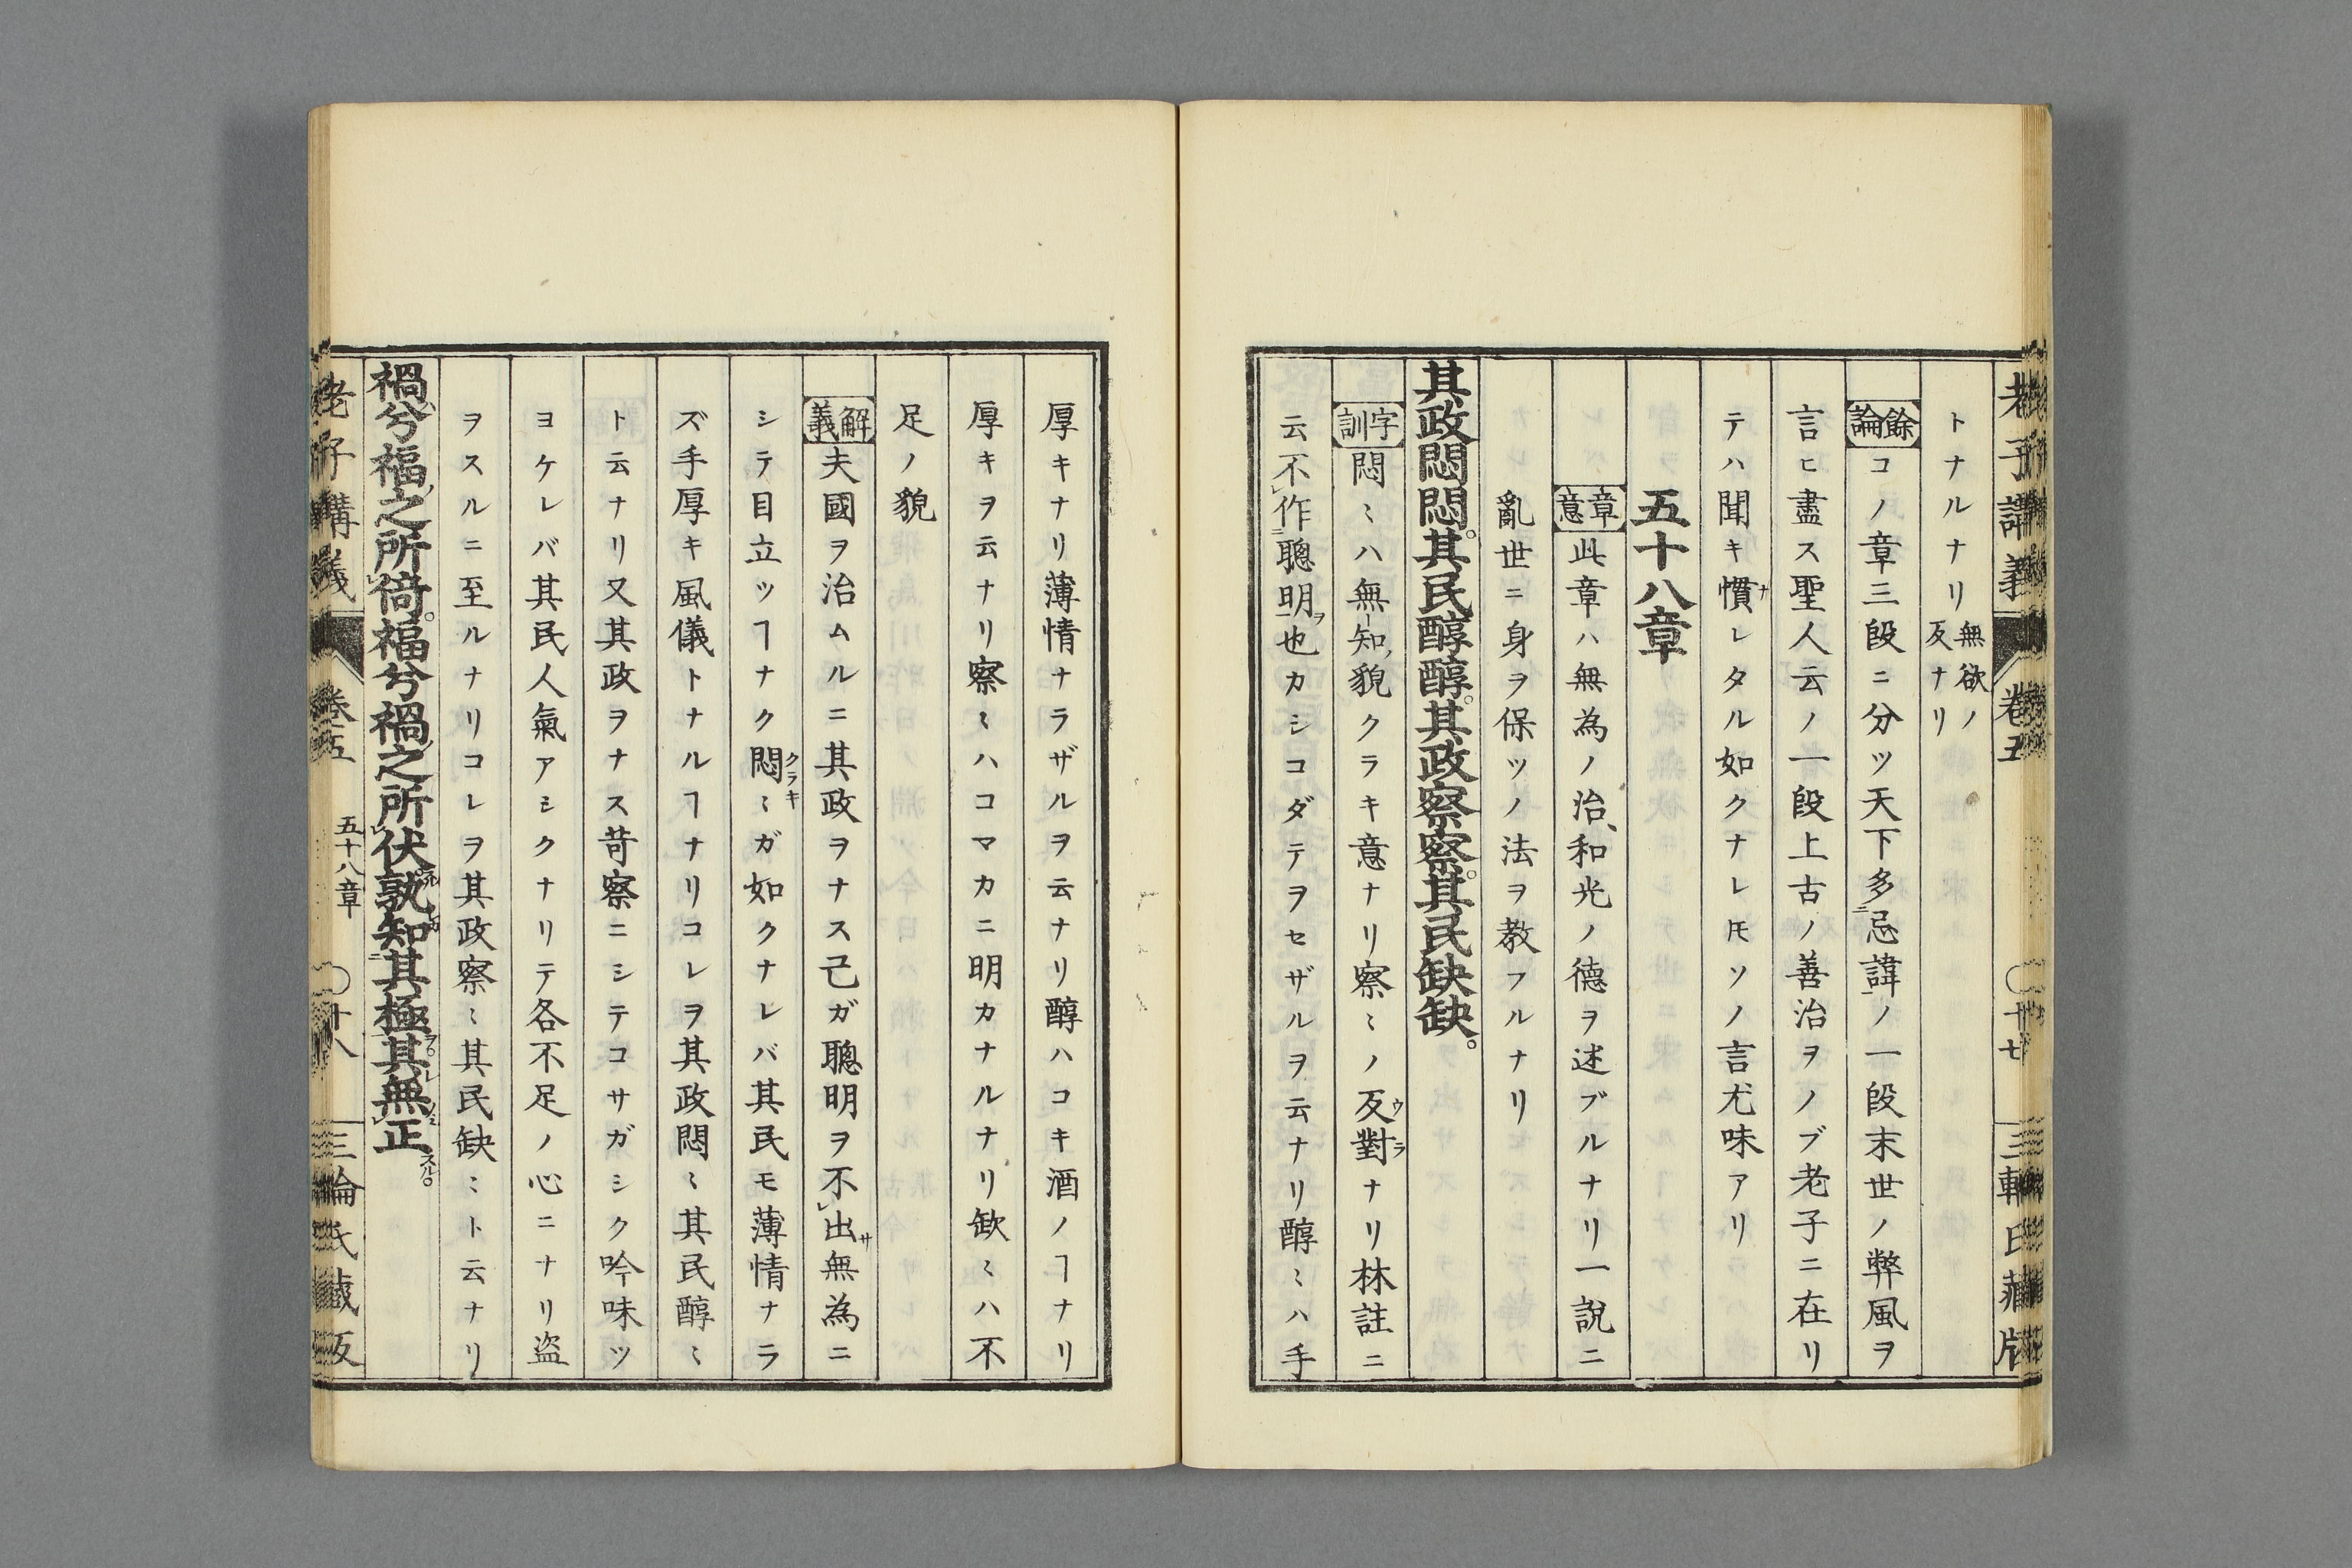 老子講義 卷五 〇廿七 三輪氏藏版
トナルナリ無欲ノ反ナリ
餘論 コノ章三段ニ分ツ天下多忌諱ノ一段末世ノ弊風ヲ
言ヒ盡ス聖人云ノ一段上古ノ善治ヲノブ老子ニ在リ
テハ聞キ慣レタル如クナレ𪜈ソノ言尤味アリ
五十八章
章意 此章ハ無為ノ治、和光ノ德ヲ述ブルナリ一說ニ
亂世ニ身ヲ保ツノ法ヲ教フルナリ
其政悶悶。其民醇醇。其政察察。其民缺缺。
字訓 悶〻ハ無知貌クラキ意ナリ察〻ノ反對ナリ林註ニ
云不作聰明也カシコダテヲセザルヲ云ナリ醇〻ハ手
厚キナリ薄情ナラザルヲ云ナリ醇ハコキ酒ノヿナリ
厚キヲ云ナリ察〻ハコマカニ明カナルナリ缺〻ハ不
足ノ貌
解義 夫國ヲ治ムルニ其政ヲナス己ガ聰明ヲ不出無為ニ
シテ目立ツヿナク悶〻ガ如クナレバ其民モ薄情ナラ
ズ手厚キ風儀トナルヿナリコレヲ其政悶〻其民醇〻
ト云ナリ又其政ヲナス苛察ニシテコサガシク吟味ツ
ヨケレバ其民人氣アシクナリテ各不足ノ心ニナリ盜
ヲスルニ至ルナリコレヲ其政察〻其民缺〻ト云ナリ
禍兮福之所倚。福兮禍之所伏孰知其極。其無正。
老子講義 卷五 五十八章 〇廿八 三輪氏藏版